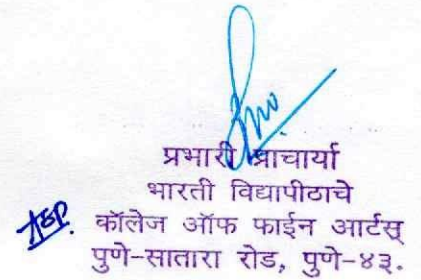 प्रभारी प्राचार्या
भारती विद्यापीठाचे
कॉलेज ऑफ फाईन आर्टस्
पुणे-सातारा रोड, पुणे-४३.